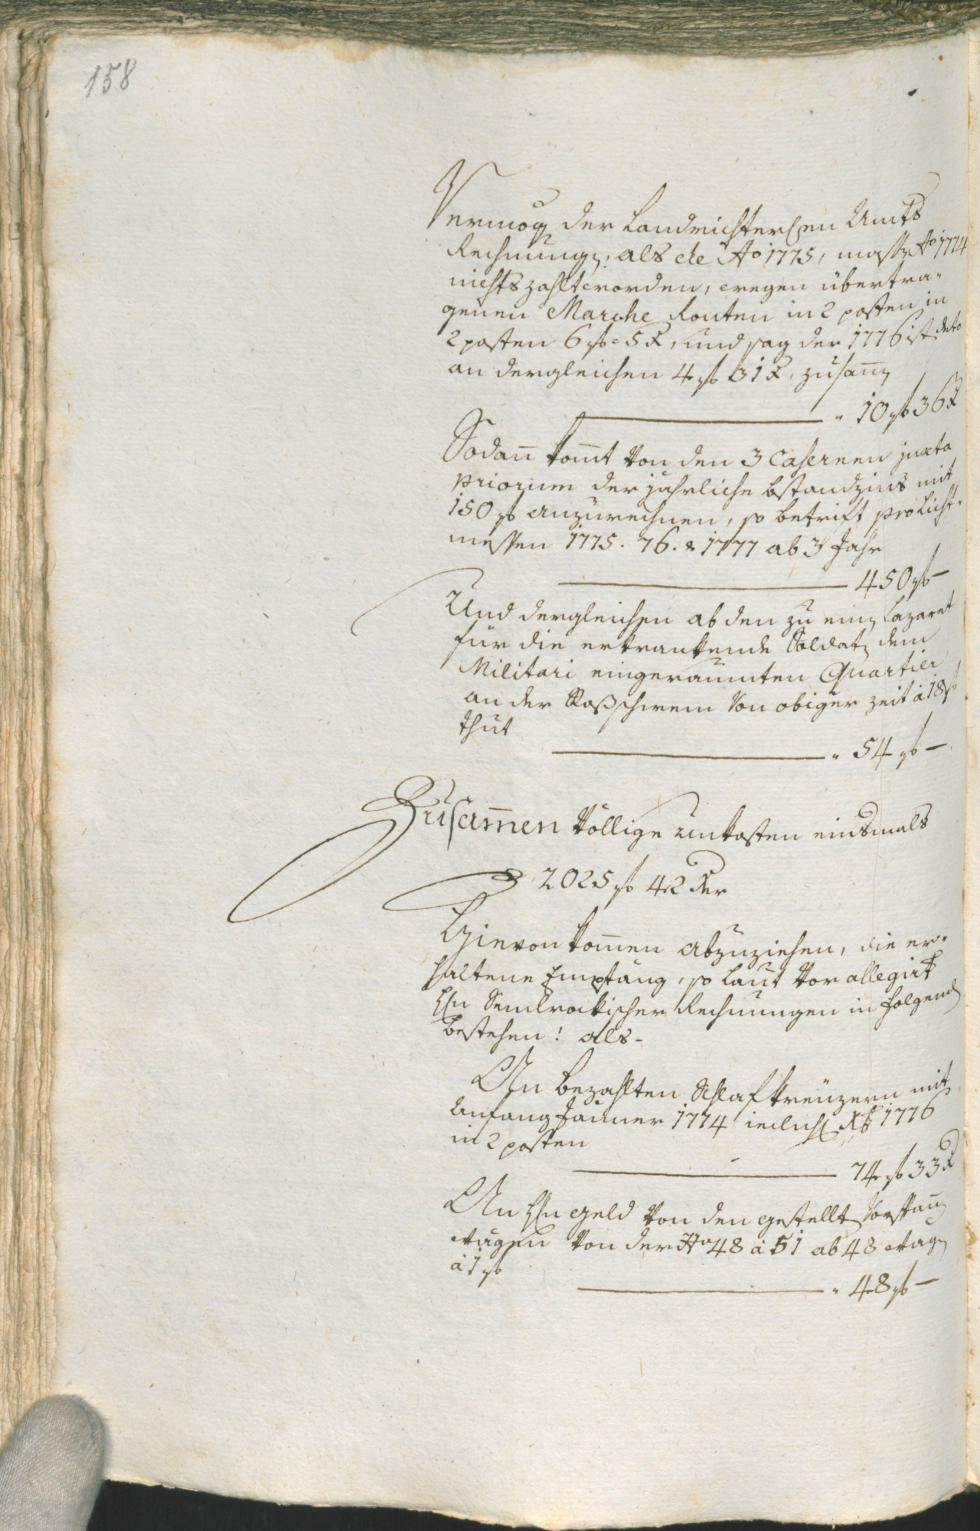 158
Vermög der Landrichterlen Amts
Rechnung, als de Ao 1775, Ao 1774
nichts zahlt worden, wegen übertra-
genen Marche Routen in 2 posten in
2 posten 6 f 5 x, und sag der 1776ist. deto
an dergleichen 4 f 31 x, zusamm
" 10 f 36 x
Sodan komt von den 3 Casernen juxta
priorum der jährliche bstandzins mit
150 f anzurechnen, so betrift pro Licht-
messen 1775. 76. & 1777 ab 3 Jahr
450 f –
Und dergleichen ab den zu ein Lazaret
für die erkrankende Soldat dem
Militari eingeraumten Quartier
an der Roßschwem von obiger zeit à 18 f
thut
" 54 f –
Zusammen völlige unkosten einsmals
2025 f 42 xer
Hievon komen abzuziehen, die er-
haltene Empfäng, so laut vor allegirt
Rechnungen in folgend
bestehen! als-
An bezahlten Schlafkreuzern mit
Anfang Jänner 1774 1776
in 2 posten
74 f 33 x
An geld von den gestellt Vorspan
wägen von der No 48 à 51 ab 48 wäg
à 1 f
" 48 f –